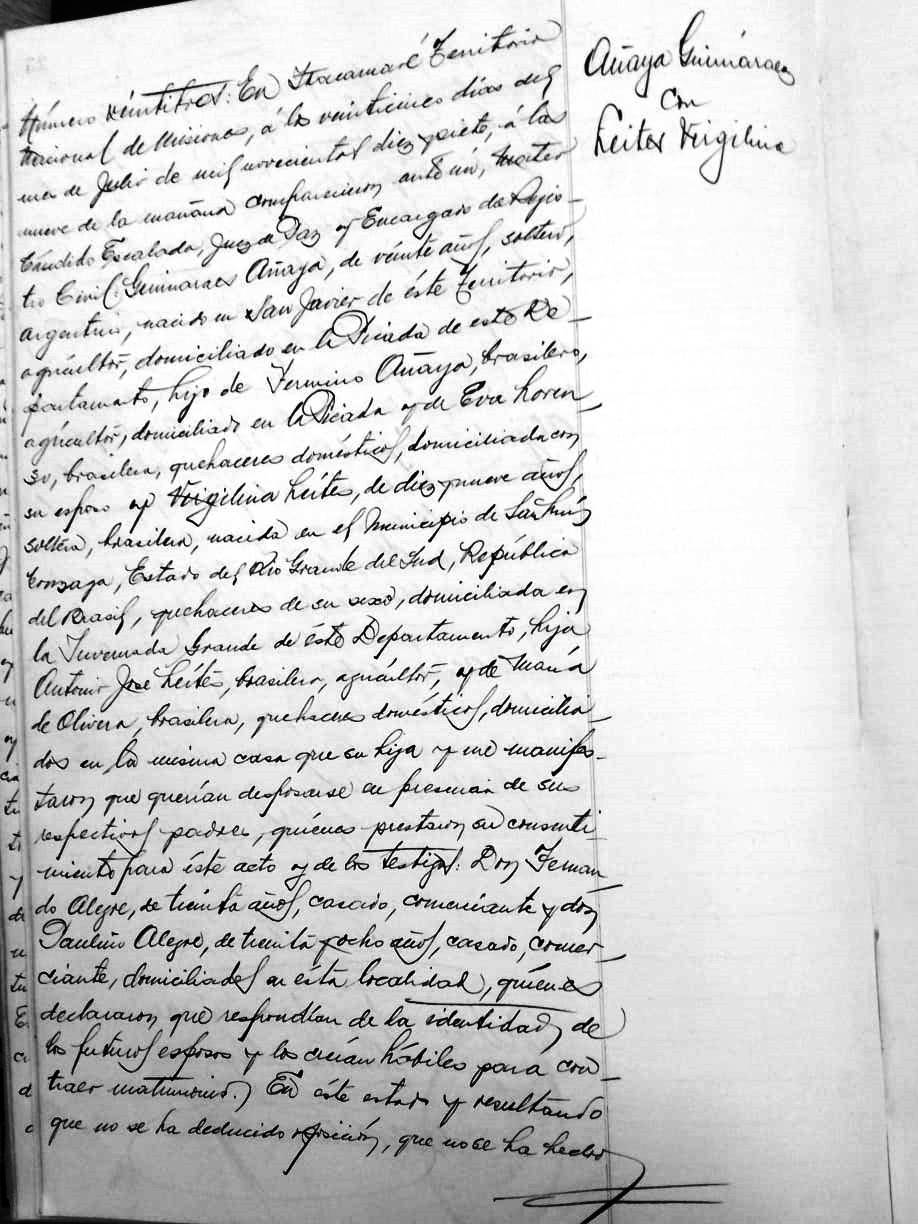 Añaya Guimáraes
con
Leites Virgilina
Número veintitres: En Itacaruaré Territorio
Nacional de Misiones, á los veinticinco días del
mes de Julio de mil novecientos diez y siete, á las
nueve de la mañana comparecieron ante mí,
Cándido Escalada, Juez de Paz y Encargado de Regis-
tro Civil: Guimaraes Añaya, de veinte años, soltero,
argentino, nacido en San Javier de éste Territorio,
agricultor, domiciliado en la Picada de este De-
partamento, hijo de Fermino Añaya, brasilero,
agricultor, domiciliado en la Picada y de Eva Loren-
so, brasilera, quehaceres domésticos, domiciliada con
su esposo y Virgilina Leites, de diez y nueve años,
soltera, brasilera, nacida en el Municipio de San Luis
Gonzaga, Estado del Rio Grande del Sud, República
del Brasil, quehaceres de su sexo, domiciliada en
la Invernada Grande de éste Departamento, hija
Antonio José Leites, brasilero, agricultor, y de María
de Olivera, brasilera, quehaceres domésticos, domicilia-
dos en la misma casa que su hija y me manifes-
taron que querían desposarse en presencia de sus
respectivos padres, quiénes prestaron su consenti
miento para éste acto y de los testigos: Don Fernan-
do Alegre, de treinta años, casado, comerciante y don
Paulino Alegre, de treinta y ocho años, casado, comer-
ciante, domiciliados en ésta localidad, quiénes
declararon que respondían de la identidad de
los futuros esposos y los creían hábiles para con-
traer matrimonio.) En éste estado y resultando
que no se ha deducido oposición, que no se ha hecho